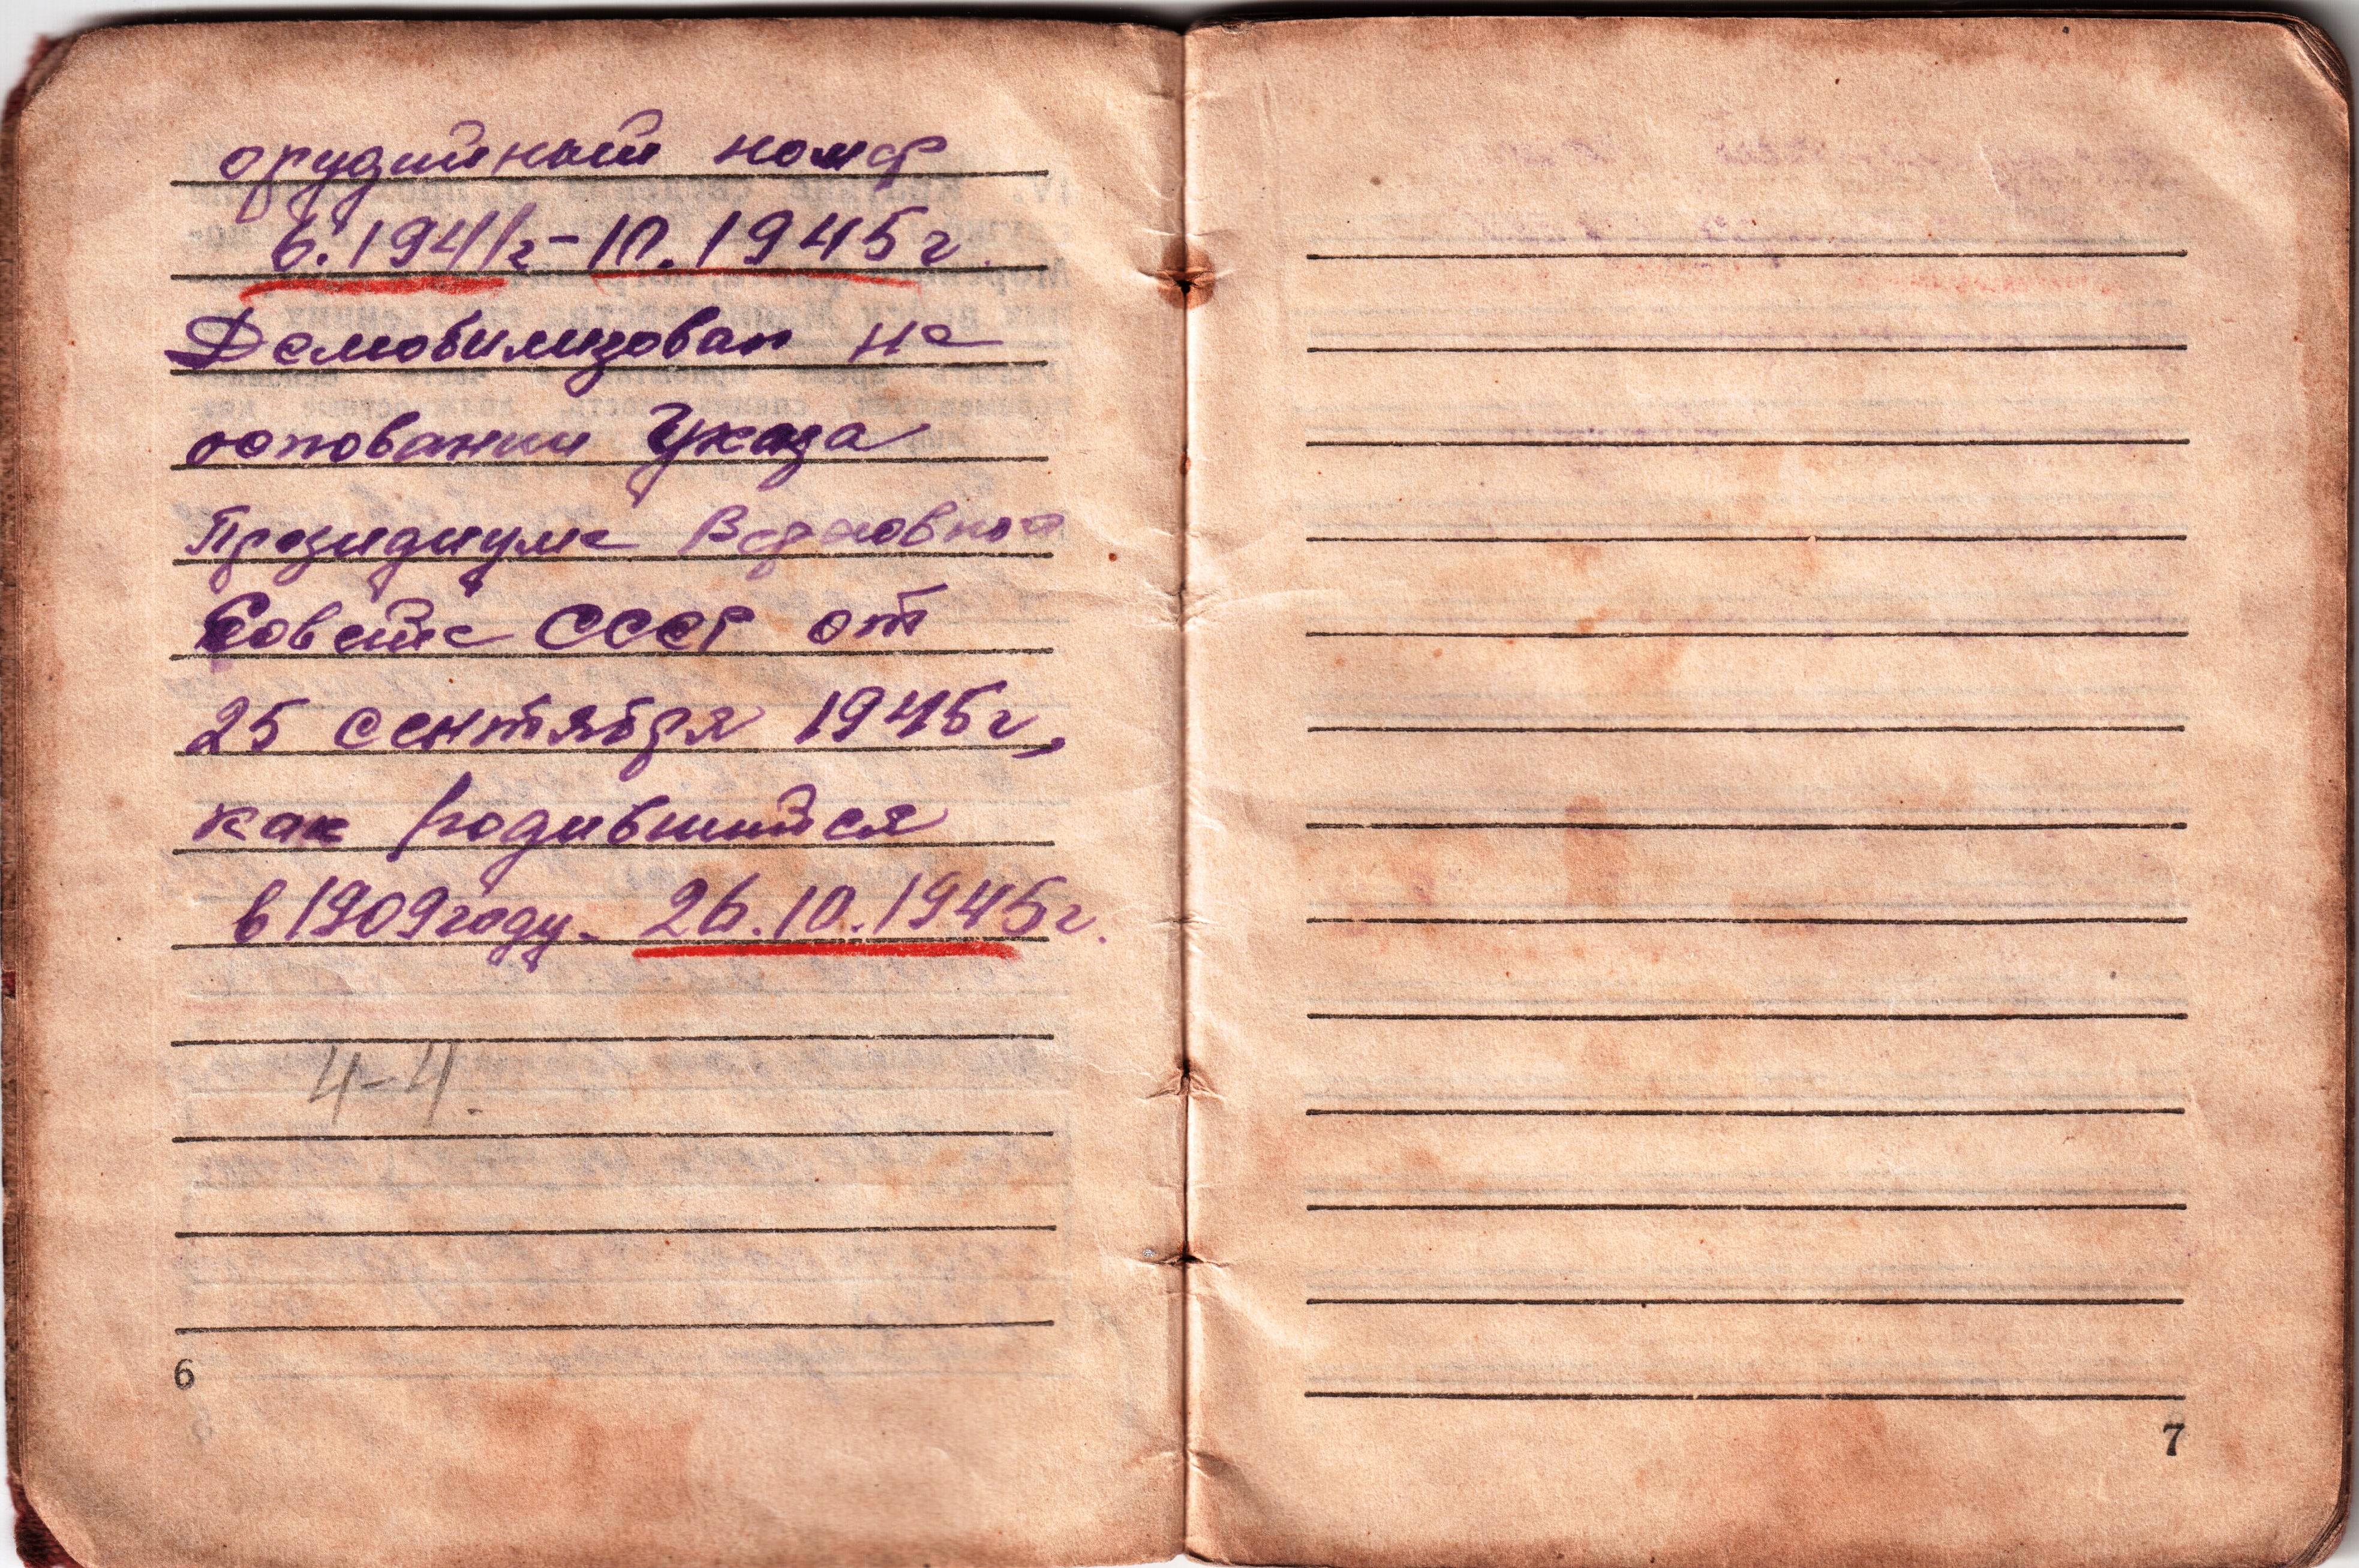 орудийный номер
6.1941г-10.1945г.
Демобилизован на
основании Указа
Президиума Верховного
Совета СССР от
25 сентября 1945г,
как родившийся
в 1909 году. 26.10.1945г.
4-4.
6
7